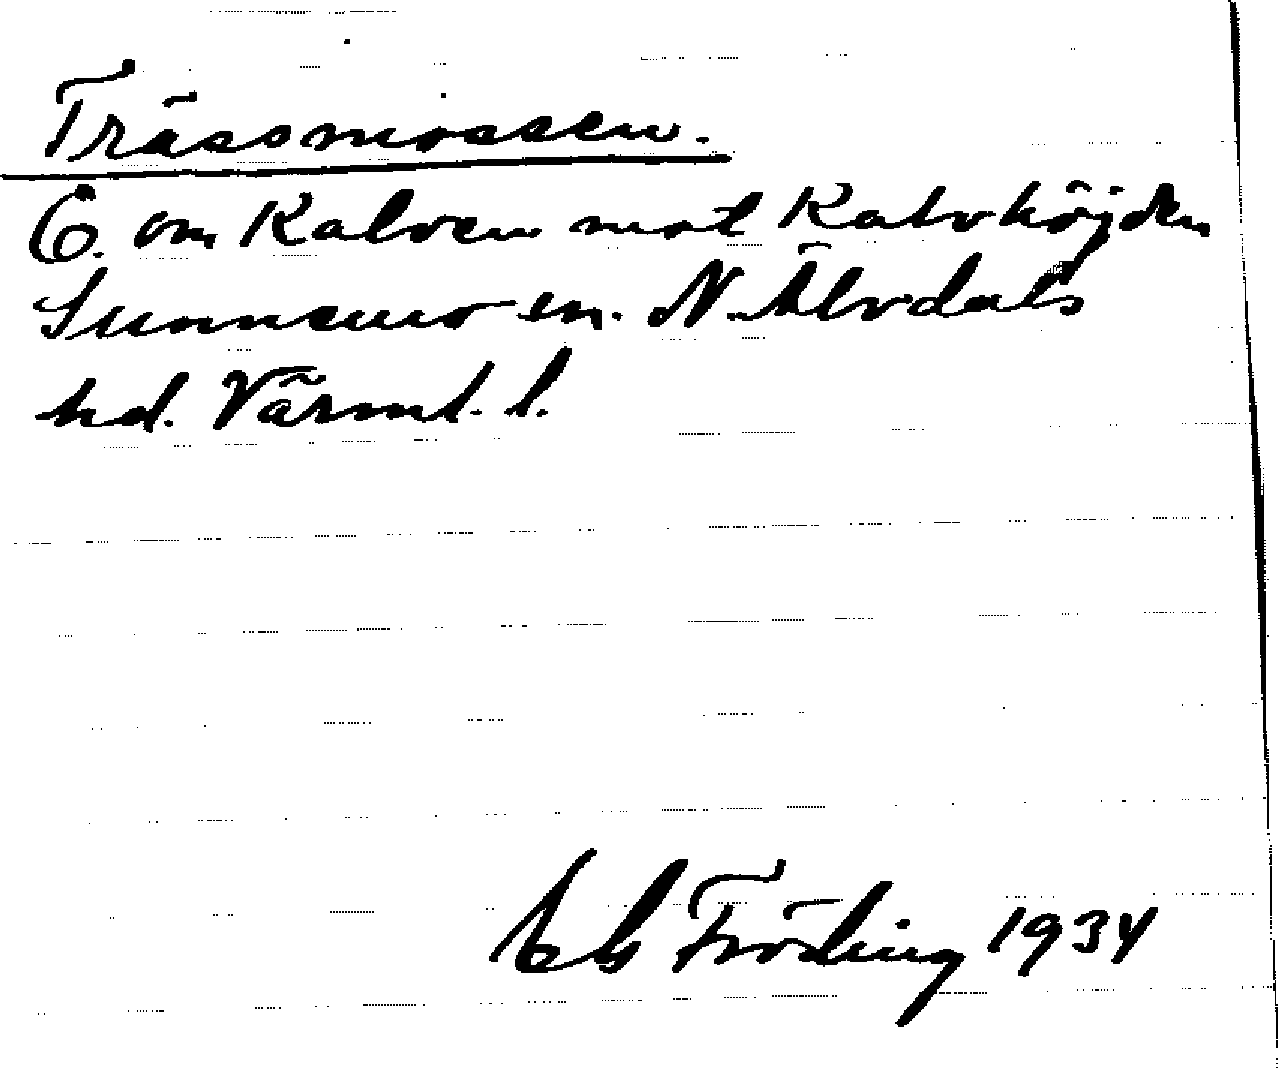 Trässmossen.
Ö. om Kalven mot Kalvhöjden
Sunnemo sn. N. Älvdals
hd. Värml. l.
Fröding 1934